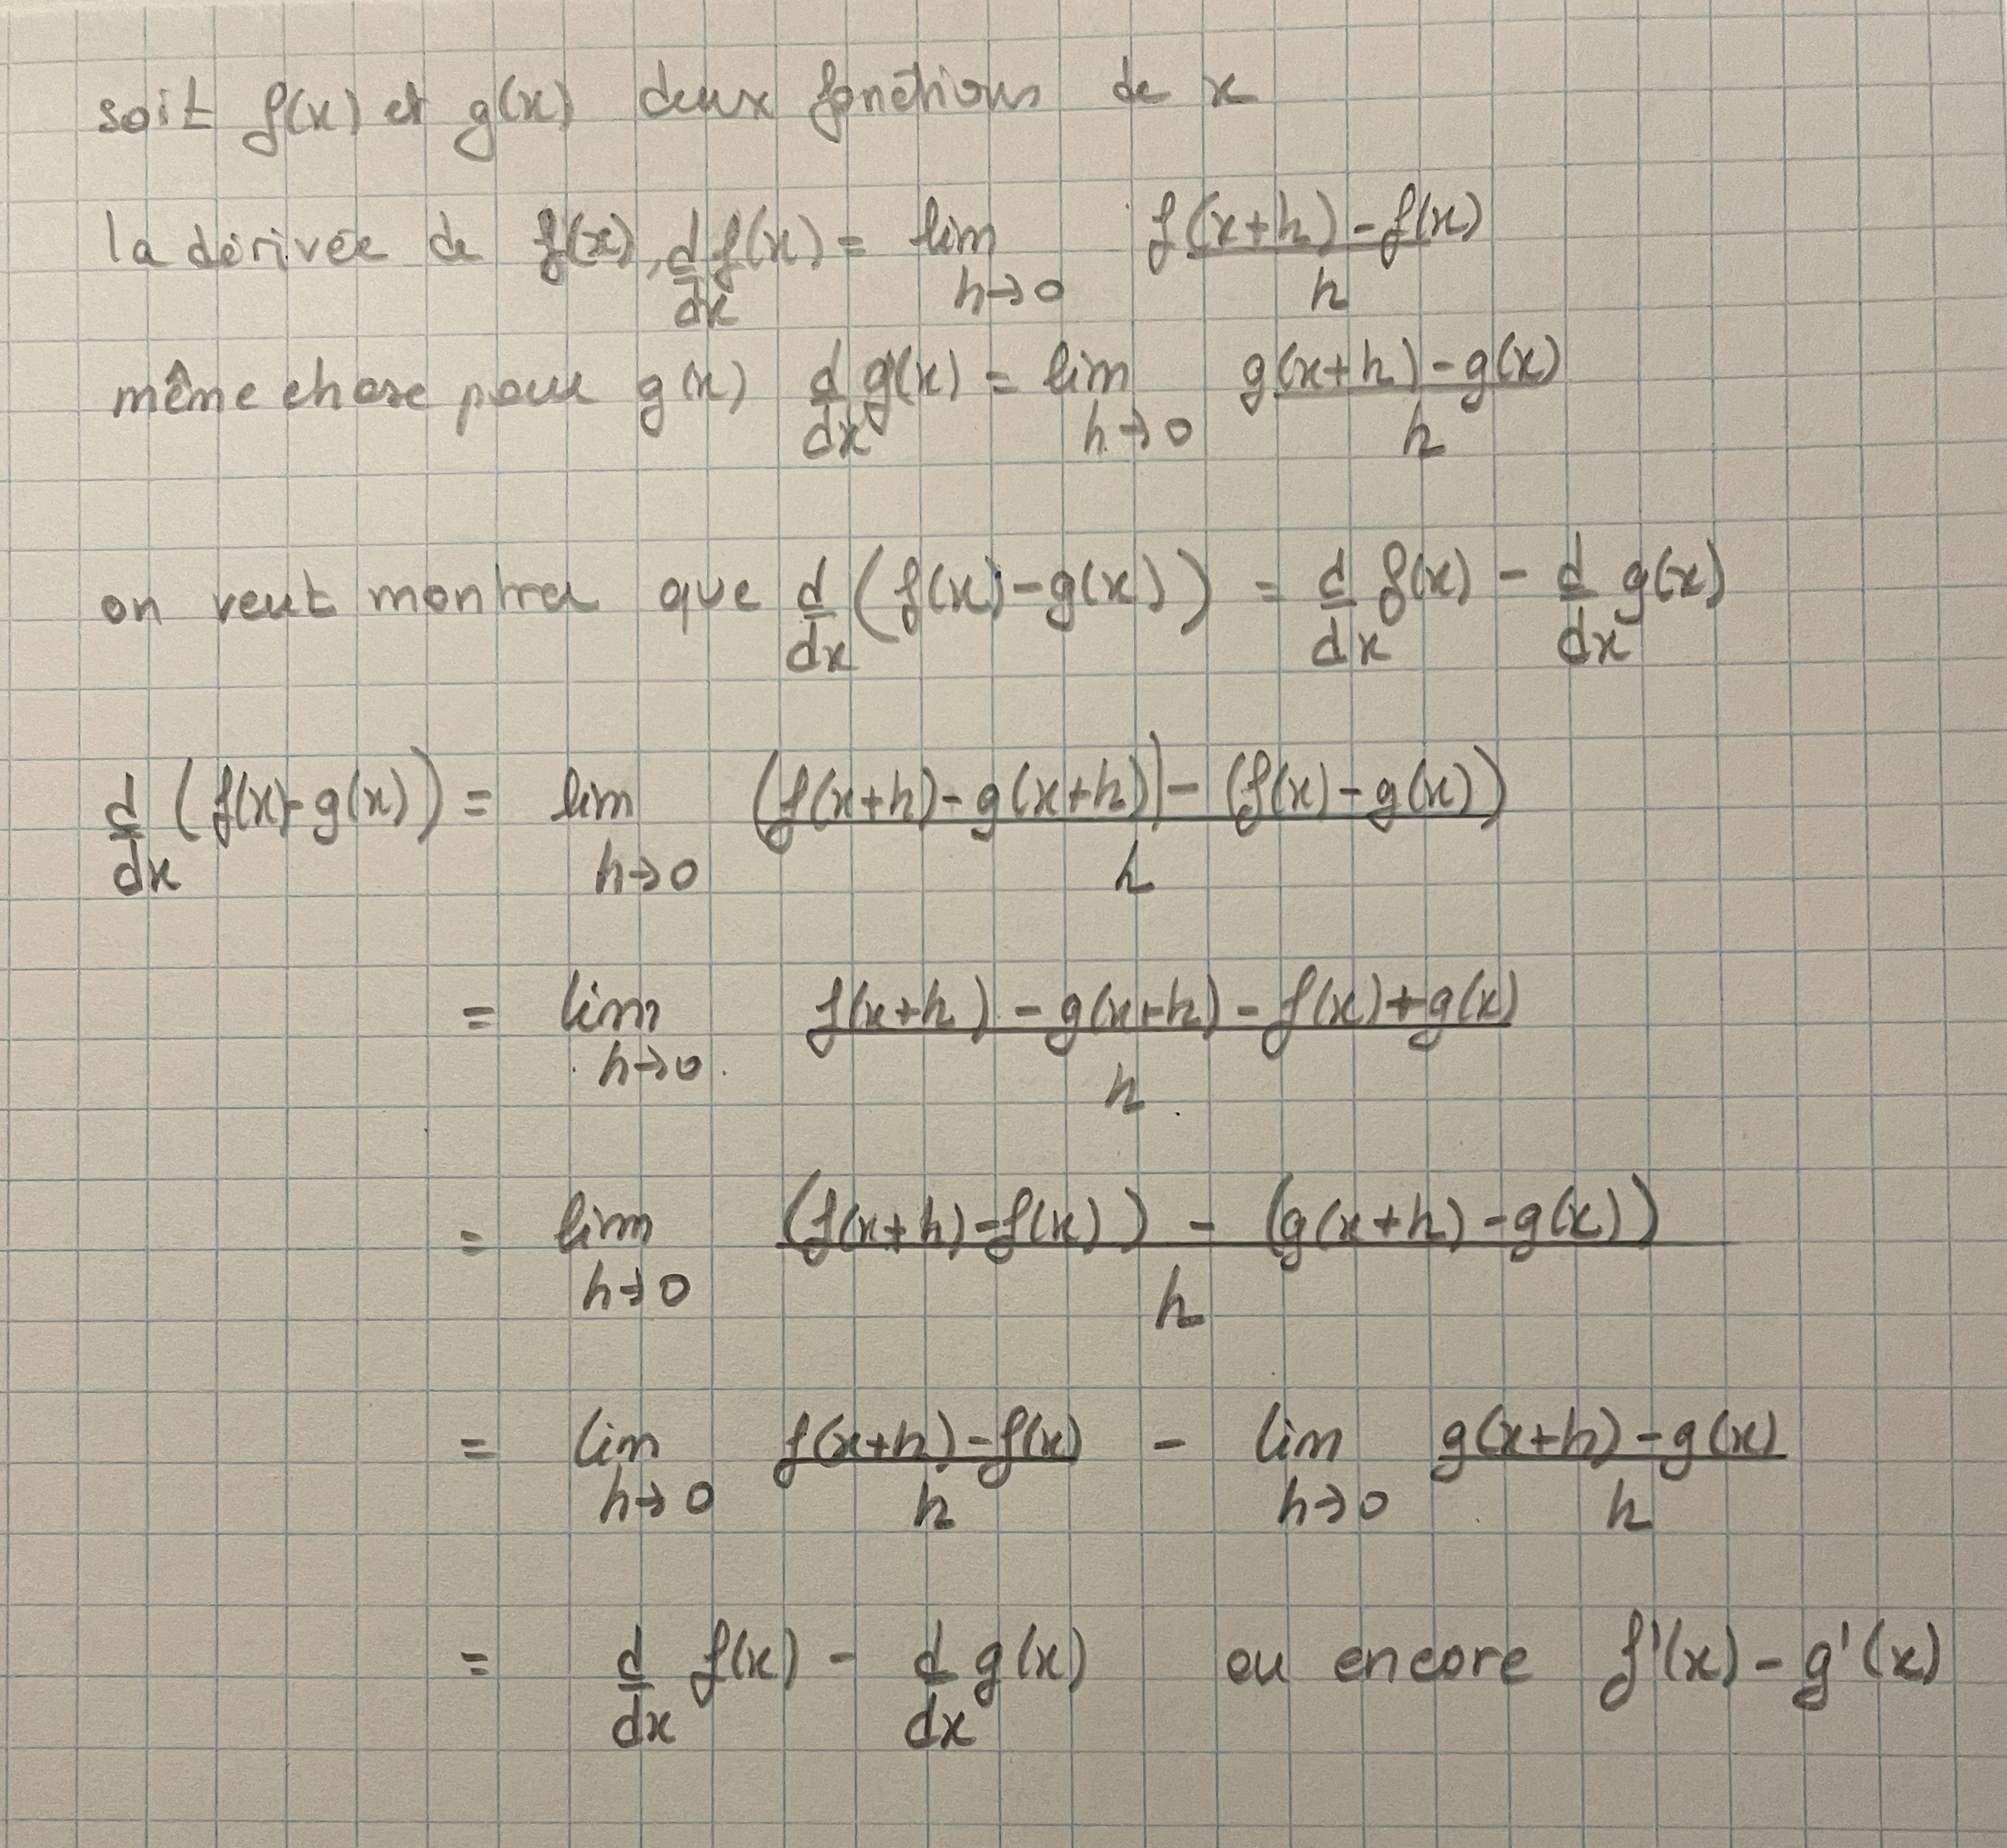 soit f(x) et g(x) deux fonctions de x
la dérivée de f(x), d/dx f(x) = lim h→0 (f(x+h)-f(x))/h
même chose pour g(x) d/dx g(x) = lim h→0 (g(x+h)-g(x))/h
on veut montrer que d/dx (f(x)-g(x)) = d/dx f(x) - d/dx g(x)
d/dx (f(x)-g(x)) = lim h→0 ((f(x+h)-g(x+h))-(f(x)-g(x)))/h
= lim h→0 (f(x+h)-g(x+h)-f(x)+g(x))/h
= lim h→0 ((f(x+h)-f(x))-(g(x+h)-g(x)))/h
= lim h→0 (f(x+h)-f(x))/h - lim h→0 (g(x+h)-g(x))/h
= d/dx f(x) - d/dx g(x) ou encore f'(x)-g'(x)